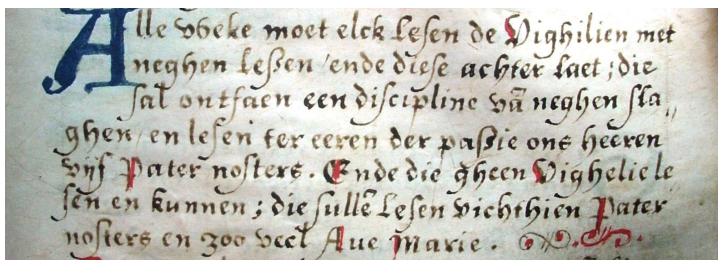 Alle weke moet elck lesen de Vighilien met
neghen lessen/ ende diese achter laet; die
sal ontfaen een discipline vā neghen sla„
ghen/ en lesen ter eeren der passie ons heeren
vijf Pater nosters. Ende die gheen Vighelie le
sen en kunnen; die sullē lesen vichthien Pater
nosters en zoo veel Aue Marie.